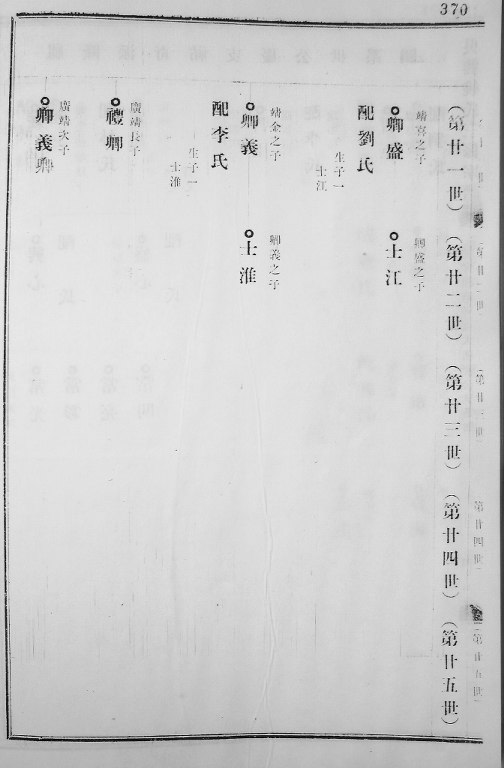 370
（第廿一世）（第廿二世）（第廿三世）（第廿四世）（第廿五世）
靖宮之子
卿盛
卿盛之子
士江
配劉氏
生子一
士江
靖金之子
卿義
卿義之子
士淮
配李氏
生子一
士淮
廣靖長子
禮卿
廣靖次子
卿義卿